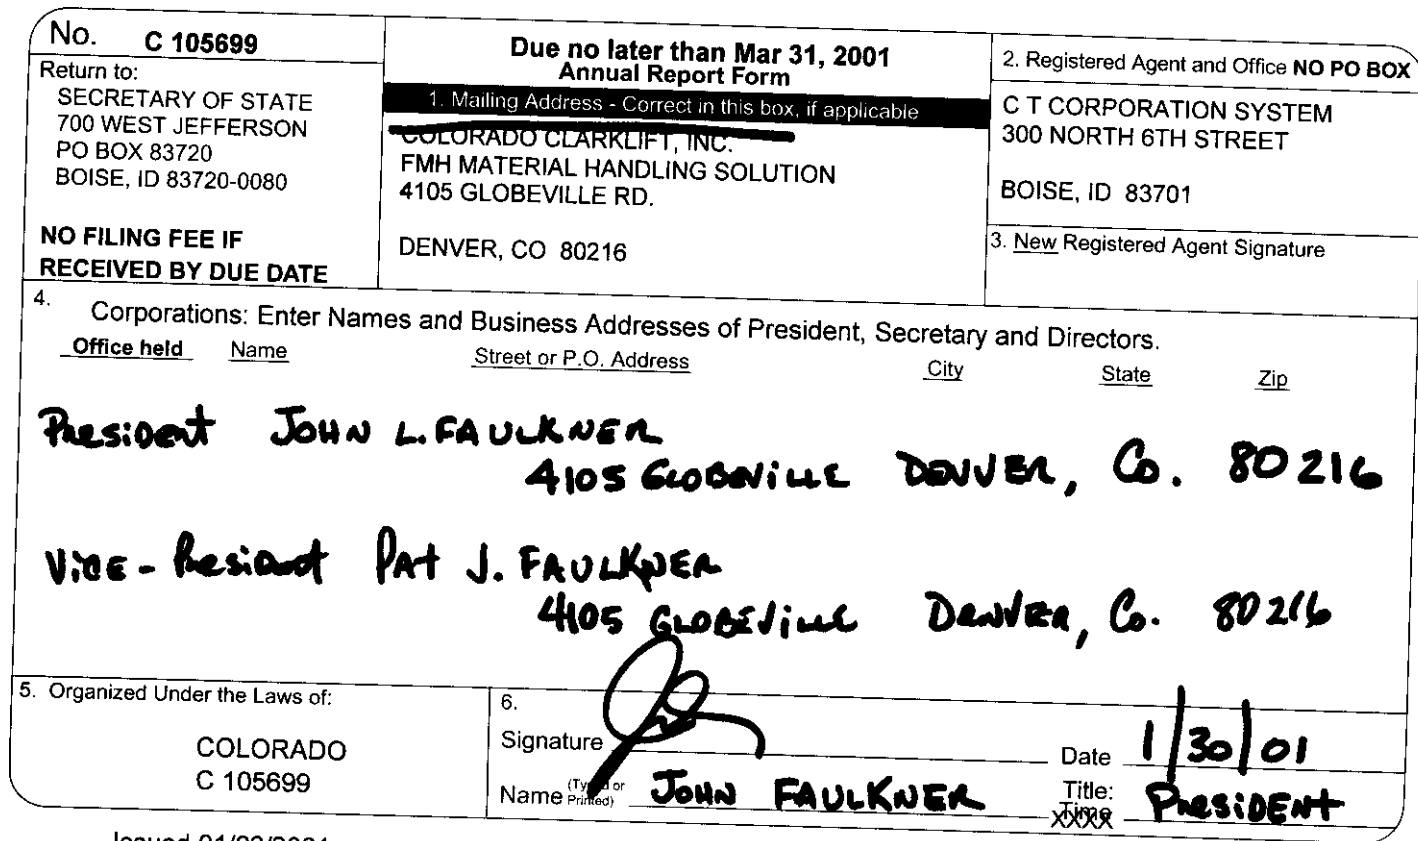 No. C 105699
Return to:
SECRETARY OF STATE
700 WEST JEFFERSON
PO BOX 83720
BOISE, ID 83720-0080
NO FILING FEE IF
RECEIVED BY DUE DATE
Due no later than Mar 31, 2001
Annual Report Form
1. Mailing Address - Correct in this box, if applicable
COLORADO CLARKLIFT, INC.
FMH MATERIAL HANDLING SOLUTION
4105 GLOBEVILLE RD.
DENVER, CO 80216
2. Registered Agent and Office NO PO BOX
C T CORPORATION SYSTEM
300 NORTH 6TH STREET
BOISE, ID 83701
3. New Registered Agent Signature
4. Corporations: Enter Names and Business Addresses of President, Secretary and Directors.
Office held Name Street or P.O. Address City State Zip
President JOHN L. FAULKNER
4105 GLOBEVILLE DENVER, Co. 80216
Vice-President PAT J. FAULKNER
4105 GLOBEVILLE DENVER, Co. 80216
5. Organized Under the Laws of:
COLORADO
C 105699
6.
Signature Date 1/30/01
Name (Typed or Printed) JOHN FAULKNER Title: PRESIDENT